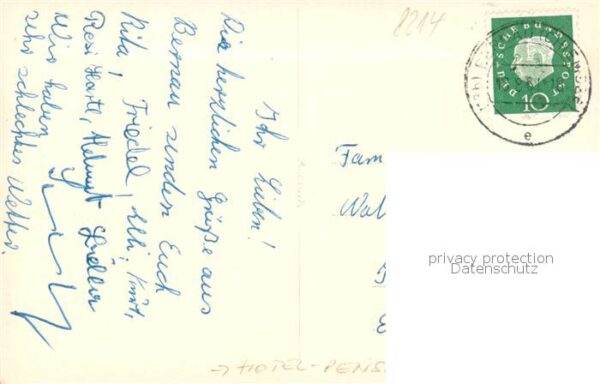 Ihr Lieben!
Die herzlichen Grüße aus
Bernau senden Euch
Rita! Friedel, Elli, Kurt,
Resi Hartl, Helmut
Wir haben
sehr schlechtes Wetter.
8214
DEUTSCHE BUNDESPOST
10
e
Fam
Wal
privacy protection
Datenschutz
→ HOTEL-PENS